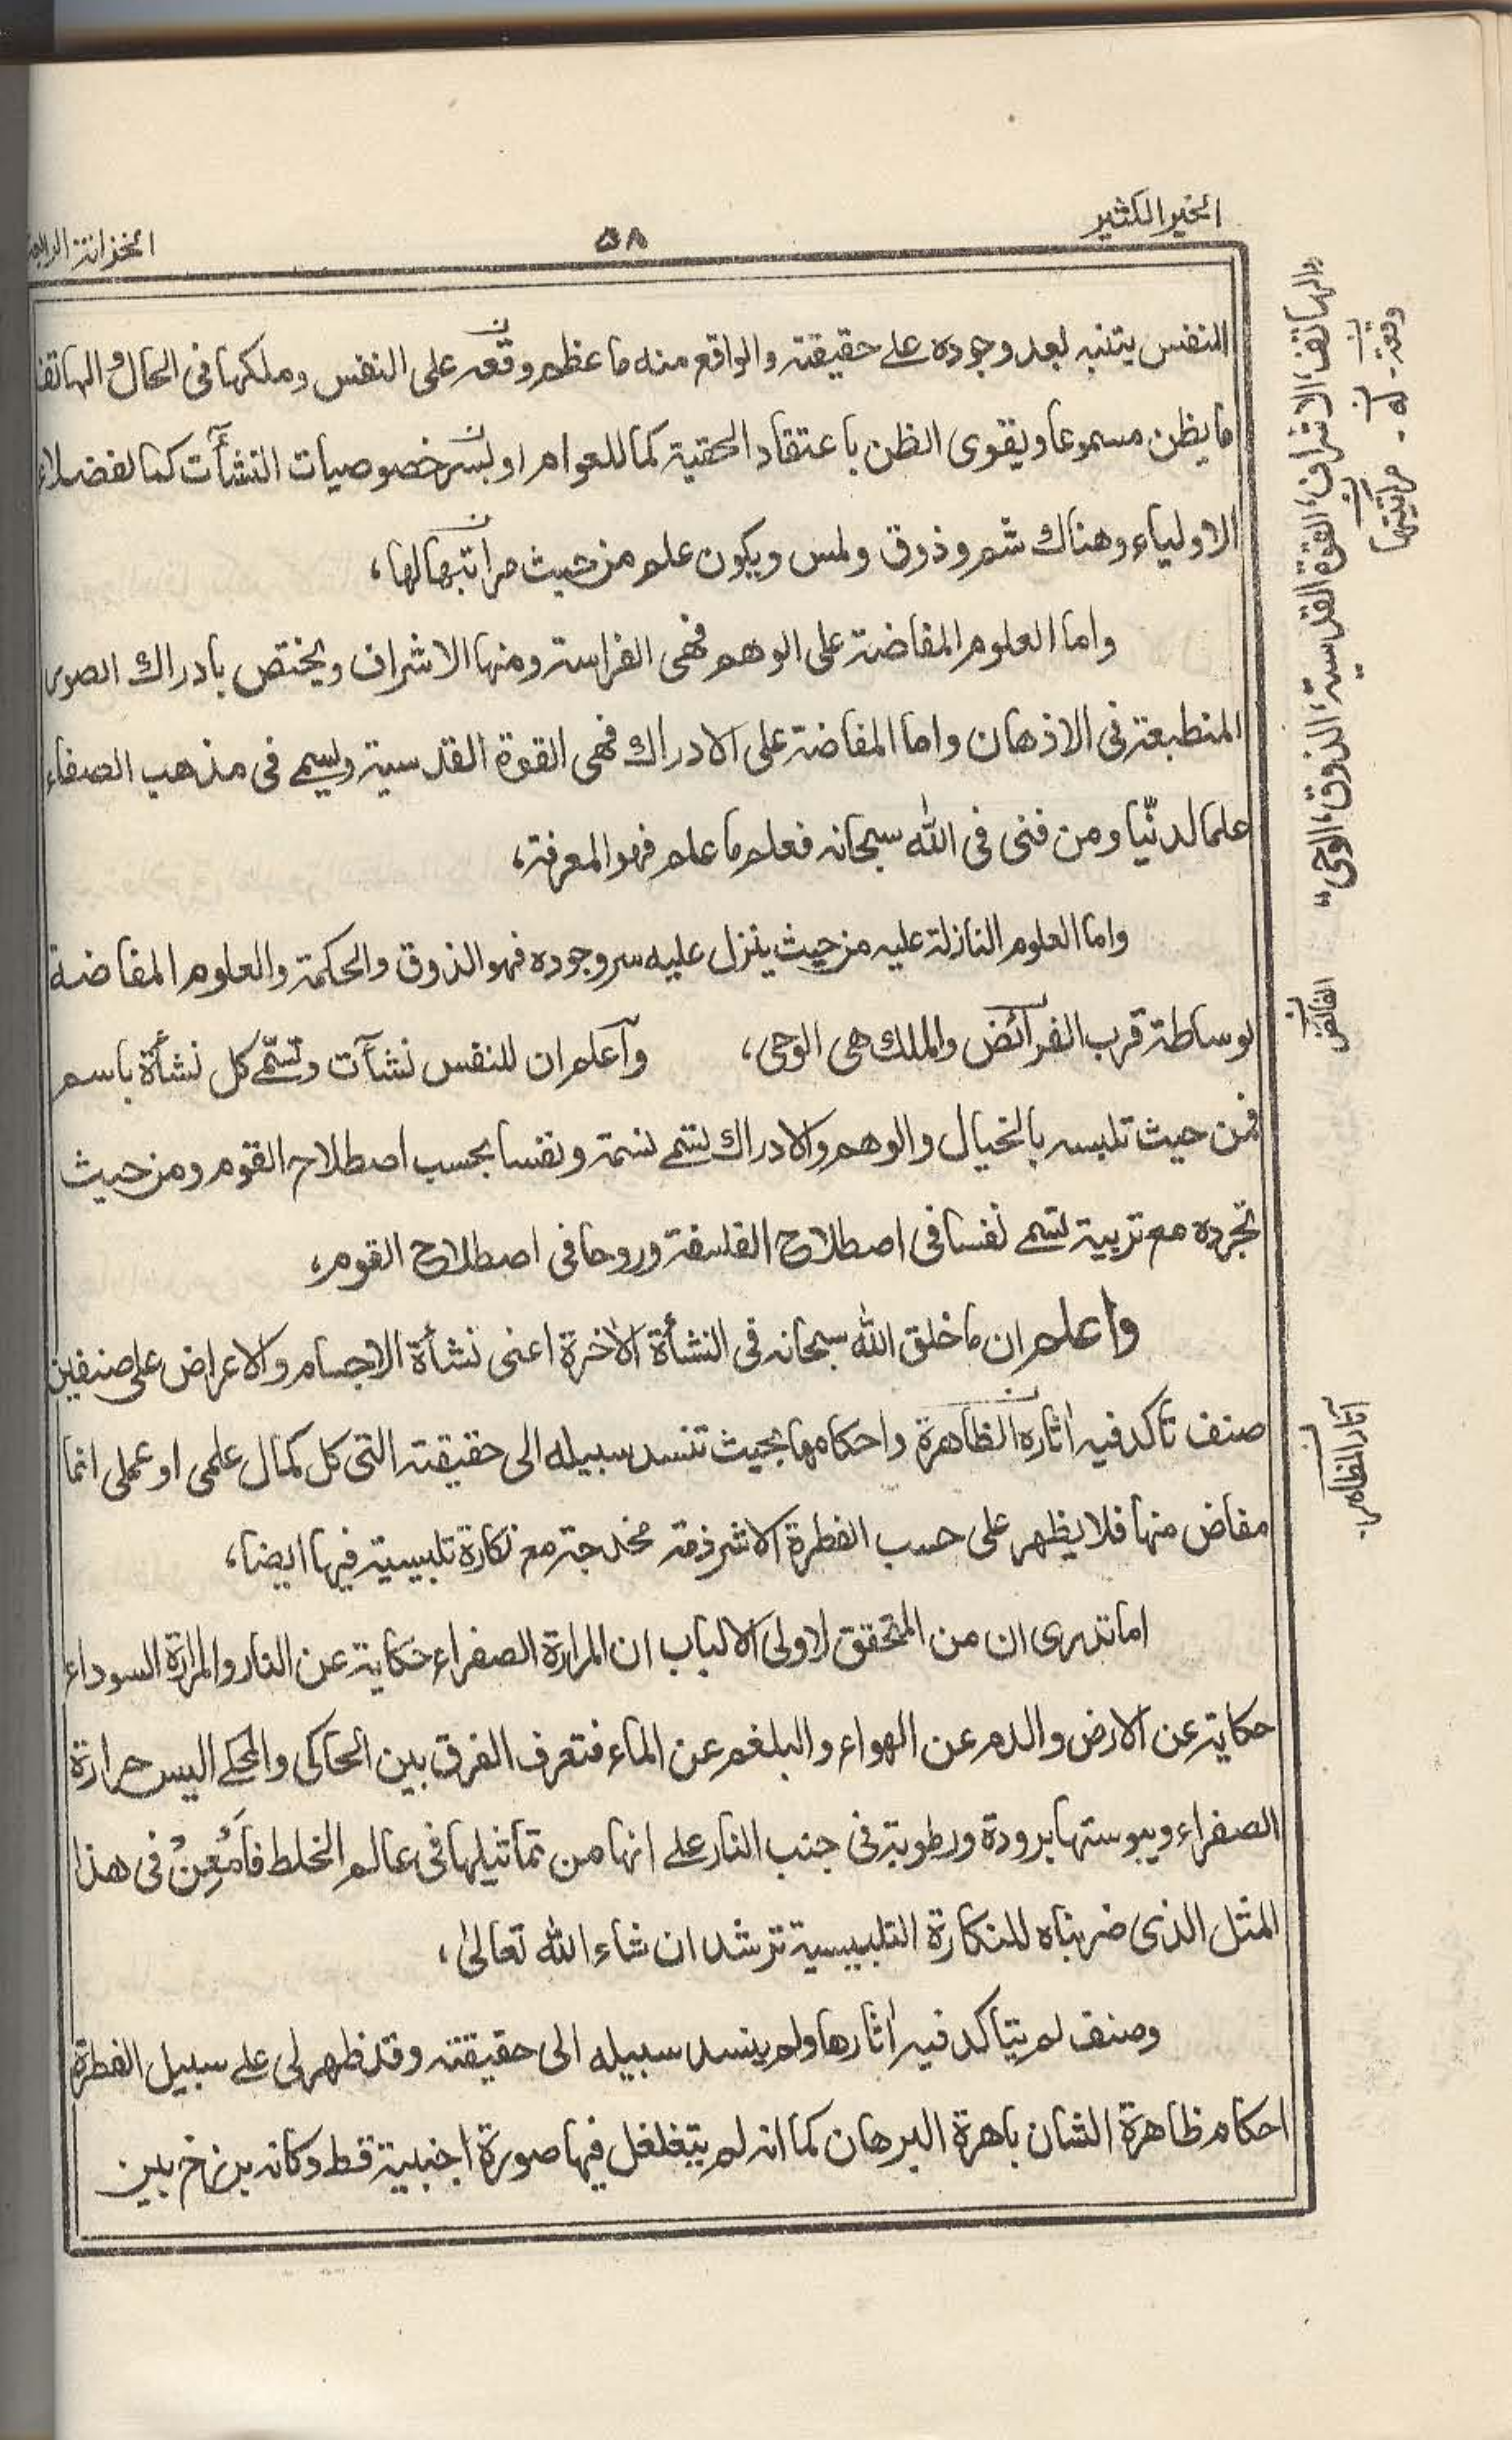 الخير الكثير
٥٨
الخزانة الرابعة
النفس يتنبه بعد وجوده على حقيقته والواقع منه ما عظم وقعه على النفس وملكها فى الحال والهاتف
ما يظن مسموعا ويقوى الظن باعتقاد الحقية كما للعوام او بسر خصوصيات النشأت كما لفضلاء
الاولياء وهناك شم وذوق ولمس ويكون علم من حيث مراتبها لها،
واما العلوم المفاضة على الوهم فهى الفراسة ومنها الاشراف ويختص بادراك الصور
المنطبعة فى الاذهان واما المفاضة على الادراك فهى القوة القدسية ويسمى فى مذهب الصفاء
علما لدنّيا ومن فنى فى الله سبحانه فعلم ما علم فهو المعرفة،
واما العلوم النازلة عليه من حيث ينزل عليه سر وجوده فهو الذوق والحكمة والعلوم المفاضة
بوساطة قرب الفرائض والملك هى الوحى، وآعلم ان للنفس نشآت وتسمّى كل نشأة باسم
فمن حيث تلبسه بالخيال والوهم والادراك تسمى نسمة ونفسا بحسب اصطلاح القوم ومن حيث
تجرده مع تربية تسمى نفسا فى اصطلاح الفلسفة وروحا فى اصطلاح القوم،
واعلم ان ما خلق الله سبحانه فى النشأة الاخرة اعنى نشأة الاجسام والاعراض على صنفين
صنف تأكد فيه اثاره الظاهرة واحكامها بحيث تنسد سبيله الى حقيقته التى كل كمال علمى او عملى انما
مفاض منها فلا يظهر على حسب الفطرة الا شرذمة مخدجة مع نكارة تلبيسية فيها ايضا،
اما تدرى ان من المتحقق لاولى الالباب ان المرارة الصفراء حكاية عن النار والمرارة السوداء
حكاية عن الارض والدم عن الهواء والبلغم عن الماء فتعرف الفرق بين الحاكى والمحكى اليس حرارة
الصفراء ويبوستها برودة ورطوبة فى جنب النار على انها من تماثيلها فى عالم الخلط فأمْعِنْ فى هذا
المثل الذى ضربناه للنكارة التلبيسية ترشد ان شاء الله تعالىٰ،
وصنف لم يتاكد فيه اثارها ولم ينسد سبيله الى حقيقته وقد ظهر لى على سبيل الفطرة
احكام ظاهرة الشان باهرة البرهان كما انه لم يتغلغل فيها صورة اجنبية قط وكانه برزخ بين
والهاتف، الاشراف، القوة القدسية، الذوق، الوحى"
وقعته - له - مرآتيتها
الفائض
آثار المظاهر